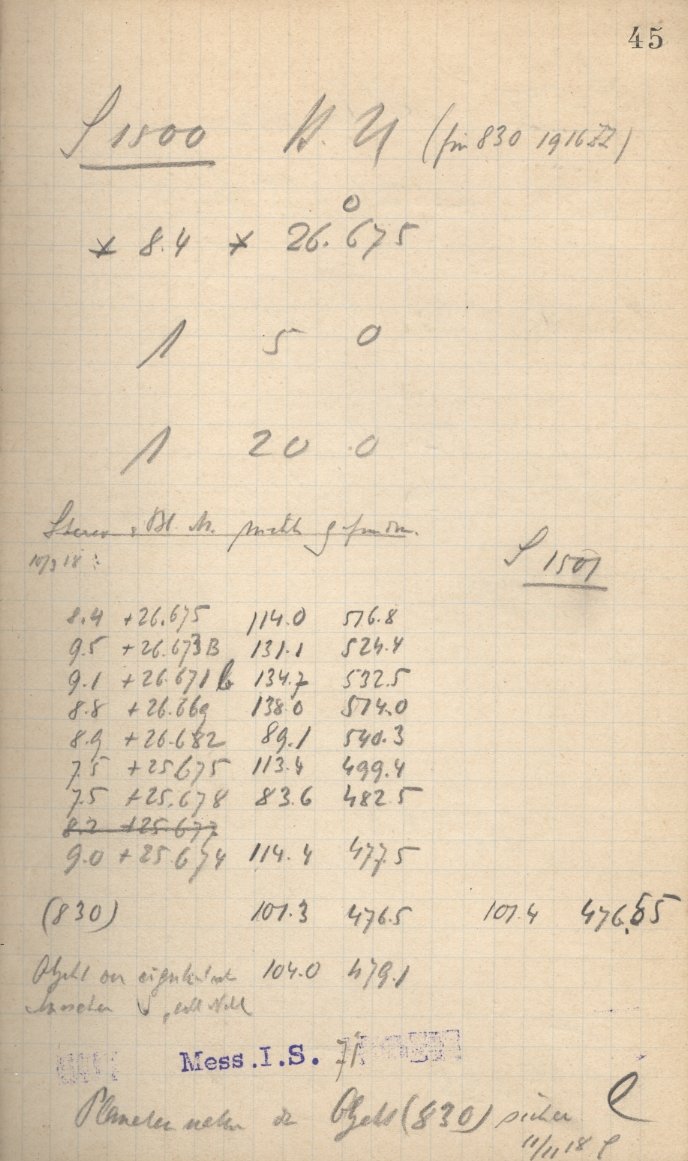 45
S 1500 (für 830 1916 ZZ)
* 8.4 * 26.675
0
1 5 0
1 20 0
Stereo : Bl M. nicht gefunden.
10/3 18 :
S 1501
8.4 +26.675 114.0 516.8
9.5 +26.673B 131.1 524.4
9.1 +26.671b 134.7 532.5
8.8 +26.669 138.0 514.0
8.9 +26.682 89.1 540.3
7.5 +25.675 113.4 499.4
7.5 +25.678 83.6 482.5
8.2 +25.677
9.0 +25.674 114.4 477.5
(830) 101.3 476.5 101.4 476.55
Objekt von 104.0 479.1
Mess.I.S. 71
Planeten neben Objekt (830) sicher
11/11 18